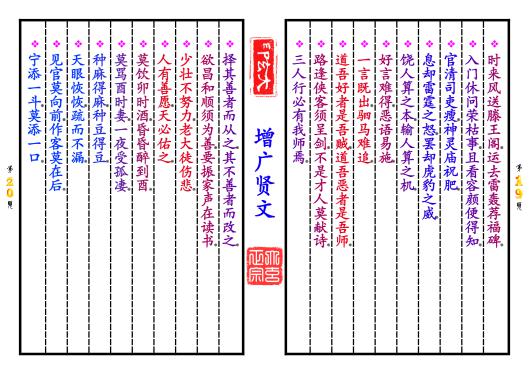 时来风送滕王阁。运去雷轰荐福碑。
入门休问荣枯事。且看容颜便得知。
官清司吏瘦。神灵庙祝肥。
息却雷霆之怒。罢却虎豹之威。
饶人算之本。输人算之机。
好言难得。恶语易施。
一言既出。驷马难追。
道吾好者是吾贼。道吾恶者是吾师。
路逢侠客须呈剑。不是才人莫献诗。
三人行必有我师焉。
第19页
增广贤文
择其善者而从之。其不善者而改之。
欲昌和顺须为善。要振家声在读书。
少壮不努力。老大徒伤悲。
人有善愿。天必佑之。
莫饮卯时酒。昏昏醉到酉。
莫骂酉时妻。一夜受孤凄。
种麻得麻。种豆得豆。
天眼恢恢。疏而不漏。
见官莫向前。作客莫在后。
宁添一斗。莫添一口。
第20页